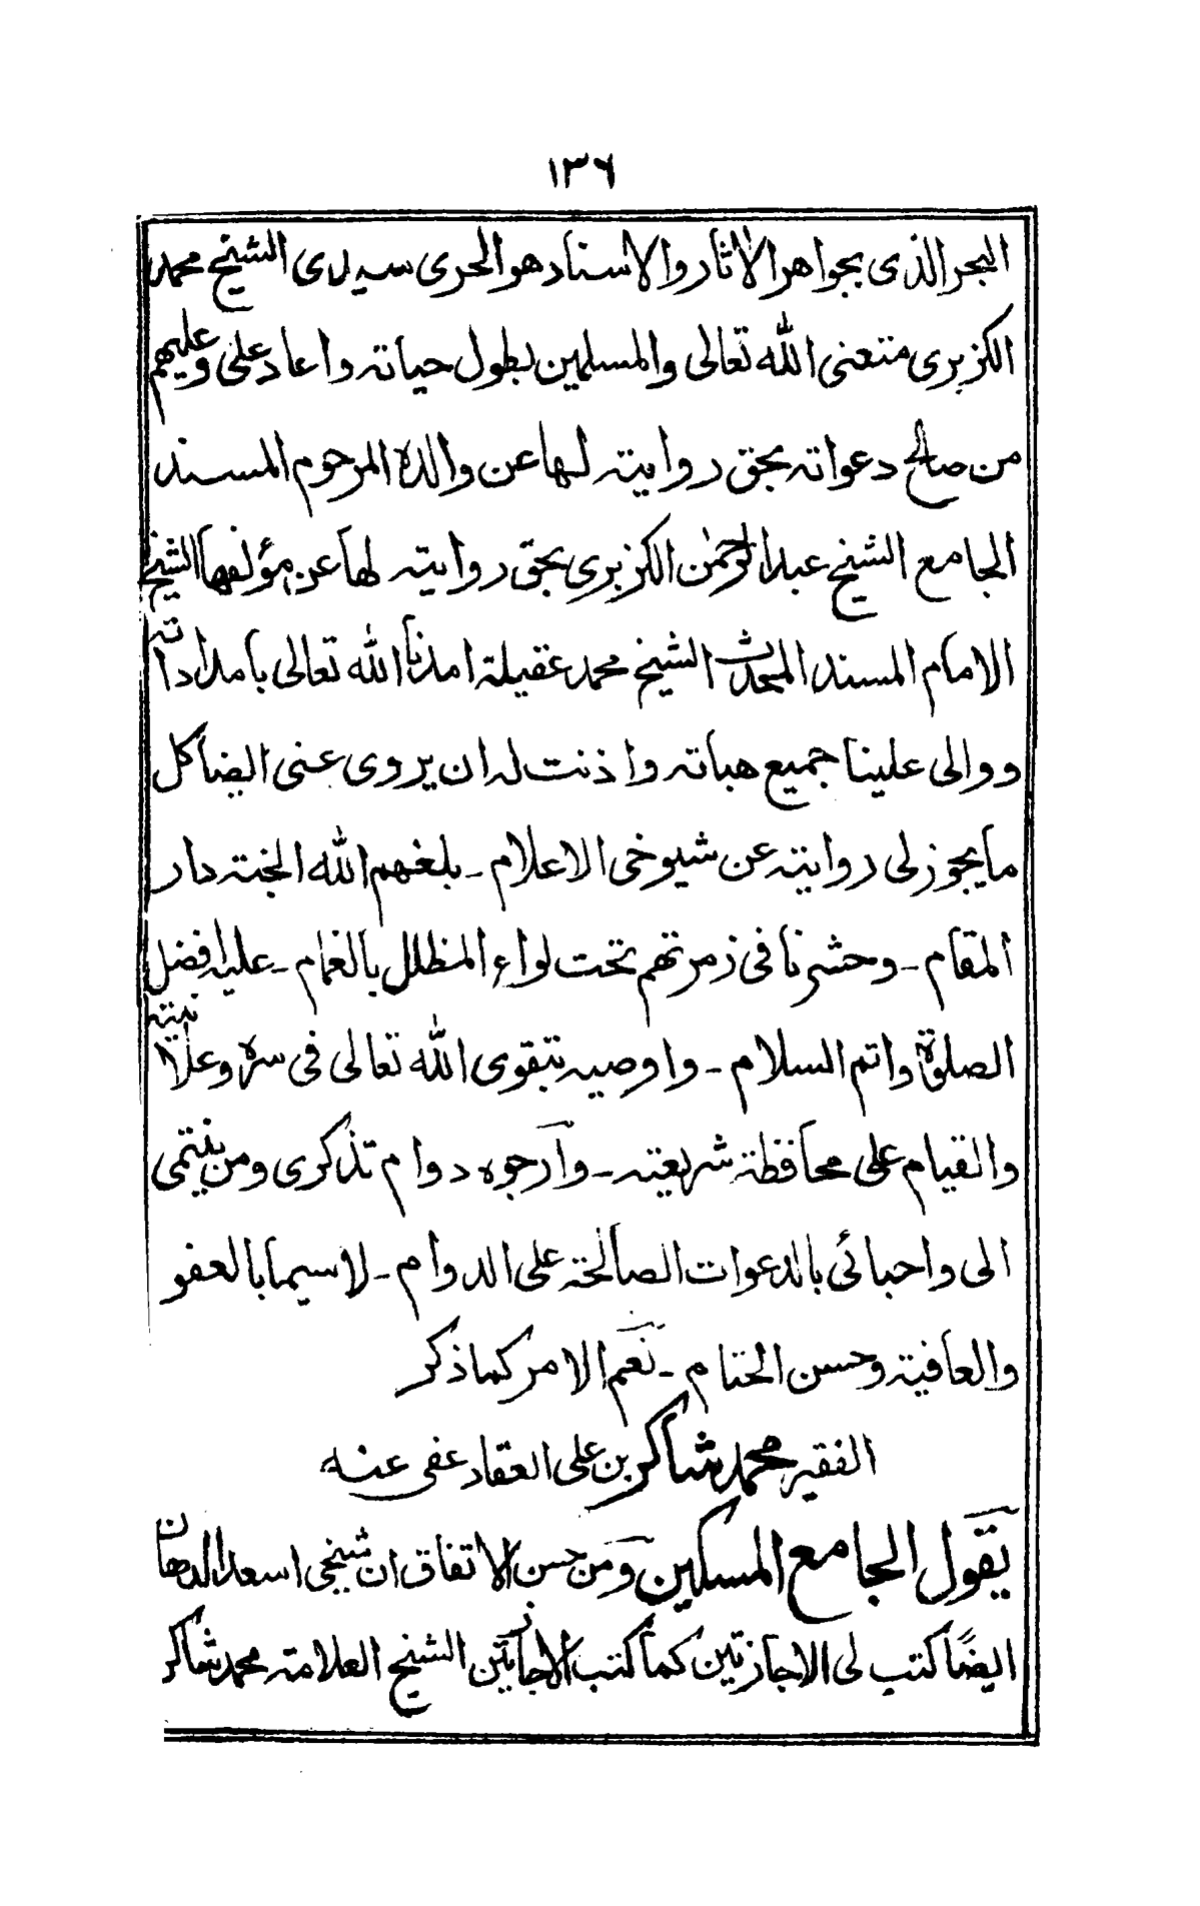 ١٣٦
البحر الذى بجواهر الاثار والاسناد هو الحرى سيدى الشيخ محمد
الكزبرى متعنى الله تعالى والمسلمين بطول حياته واعاد على وعليهم
من صالح دعواته بحق روايته لها عن والده المرحوم المسند
الجامع الشيخ عبد الرحمٰن الكزبرى بحق روايته لها عن مؤلفها الشيخ
الامام المسند المحدث الشيخ محمد عقيلة امدنا الله تعالى بامداداته
ووالى علينا جميع هباته واذنت له ان يروى عنى ايضا كل
ما يجوز لى روايته عن شيوخى الاعلام ـ بلغهم الله الجنة دار
المقام ـ وحشرنا فى زمرتهم تحت لواء المظلل بالغمام ـ عليه افضل
الصلوة واتم السلام ـ واوصيه بتقوى الله تعالى فى سره وعلانيته
والقيام على محافظة شريعته ـ وارجوه دوام تذكرى ومن ينتمى
الى واحبائى بالدعوات الصالحة على الدوام ـ لاسيما بالعفو
والعافية وحسن الختام ـ نعم الامر كما ذكر
الفقير محمد شاكر بن على العقاد عفى عنه
يقول الجامع المسكين ومن حسن الاتفاق ان شيخى اسعد الدهان
ايضًا كتب لى الاجازتين كما كتب الاجازتين الشيخ العلامة محمد شاكر